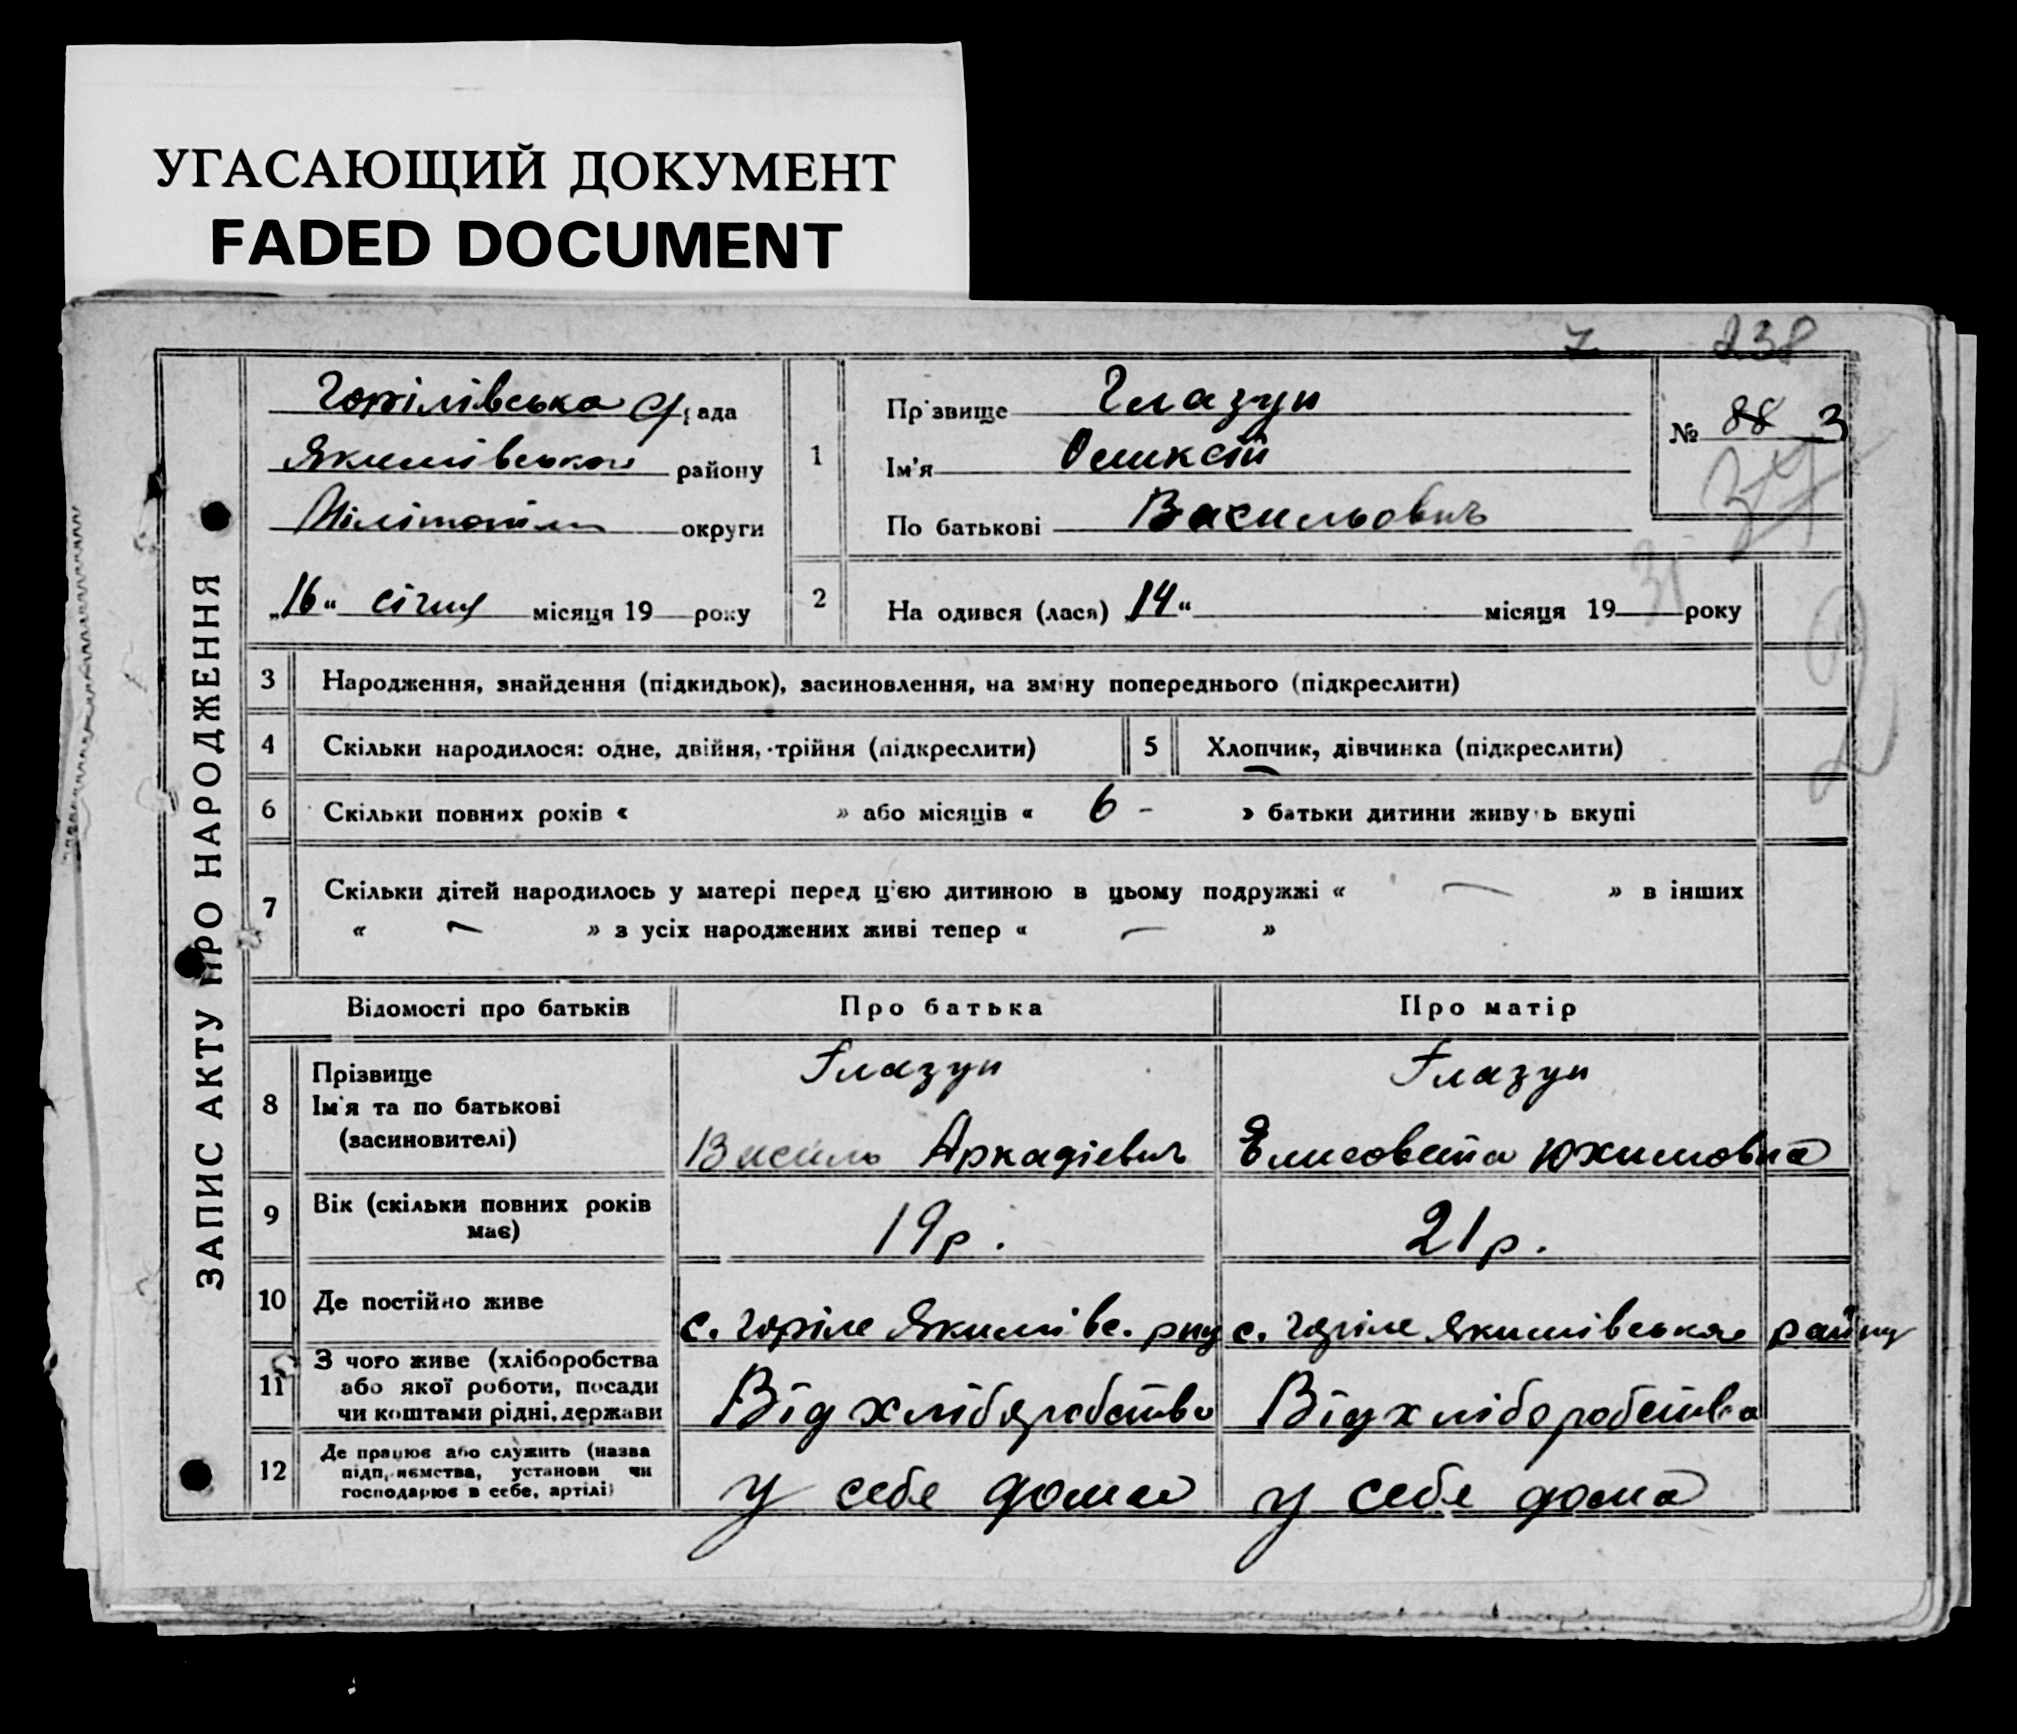 УГАСАЮЩИЙ ДОКУМЕНТ
FADED DOCUMENT
7 238
ЗАПИС АКТУ ПРО НАРОДЖЕННЯ
Горілівська ада
Якимівського району
округи
„16“ січня місяця 19 року
1
Пр звище Глазун
Ім'я Оликсій
По батькові Васильович
№ 88 3
37
2
На одився (лася) „14“ місяця 19 31 року
3 Народження, знайдення (підкидьок), засиновлення, на зміну попереднього (підкреслити)
4 Скільки народилося: одне, двійня, трійня (підкреслити) 5 Хлопчик, дівчинка (підкреслити)
6 Скільки повних років « » або місяців « 6 - » батьки дитини живу ь вкупі
7 Скільки дітей народилось у матері перед ц'єю дитиною в цьому подружжі « — » в інших
« — » з усіх народжених живі тепер « — »
Відомості про батьків Про батька Про матір
8 Прізвище
Ім'я та по батькові
(засиновителі)
Глазун
Василь Аркадієвич
Глазун
Єлисовета Юхимовна
9 Вік (скільки повних років
має)
19 р. 21 р.
10 Де постійно живе с. Горіле Якимівс. рну с. Горіле Якимівського району
11 З чого живе (хліборобства
або якої роботи, посади
чи коштами рідні, держави
Від хліборобства Від хліборобства
12 Де працює або служить (назва
підп, иємства, установи чи
господарює в себе, артілі)
у себе дома у себе дома